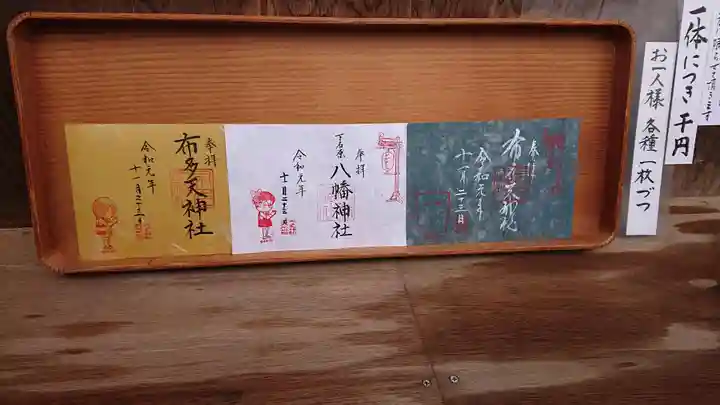 奉拝
布多天神社
令和元年
十一月二十三日
奉拝
下石原
八幡神社
令和元年
十一月二十三日
令和元年
十一月二十三日
一体につき千円
お一人様 各種 一枚づつ